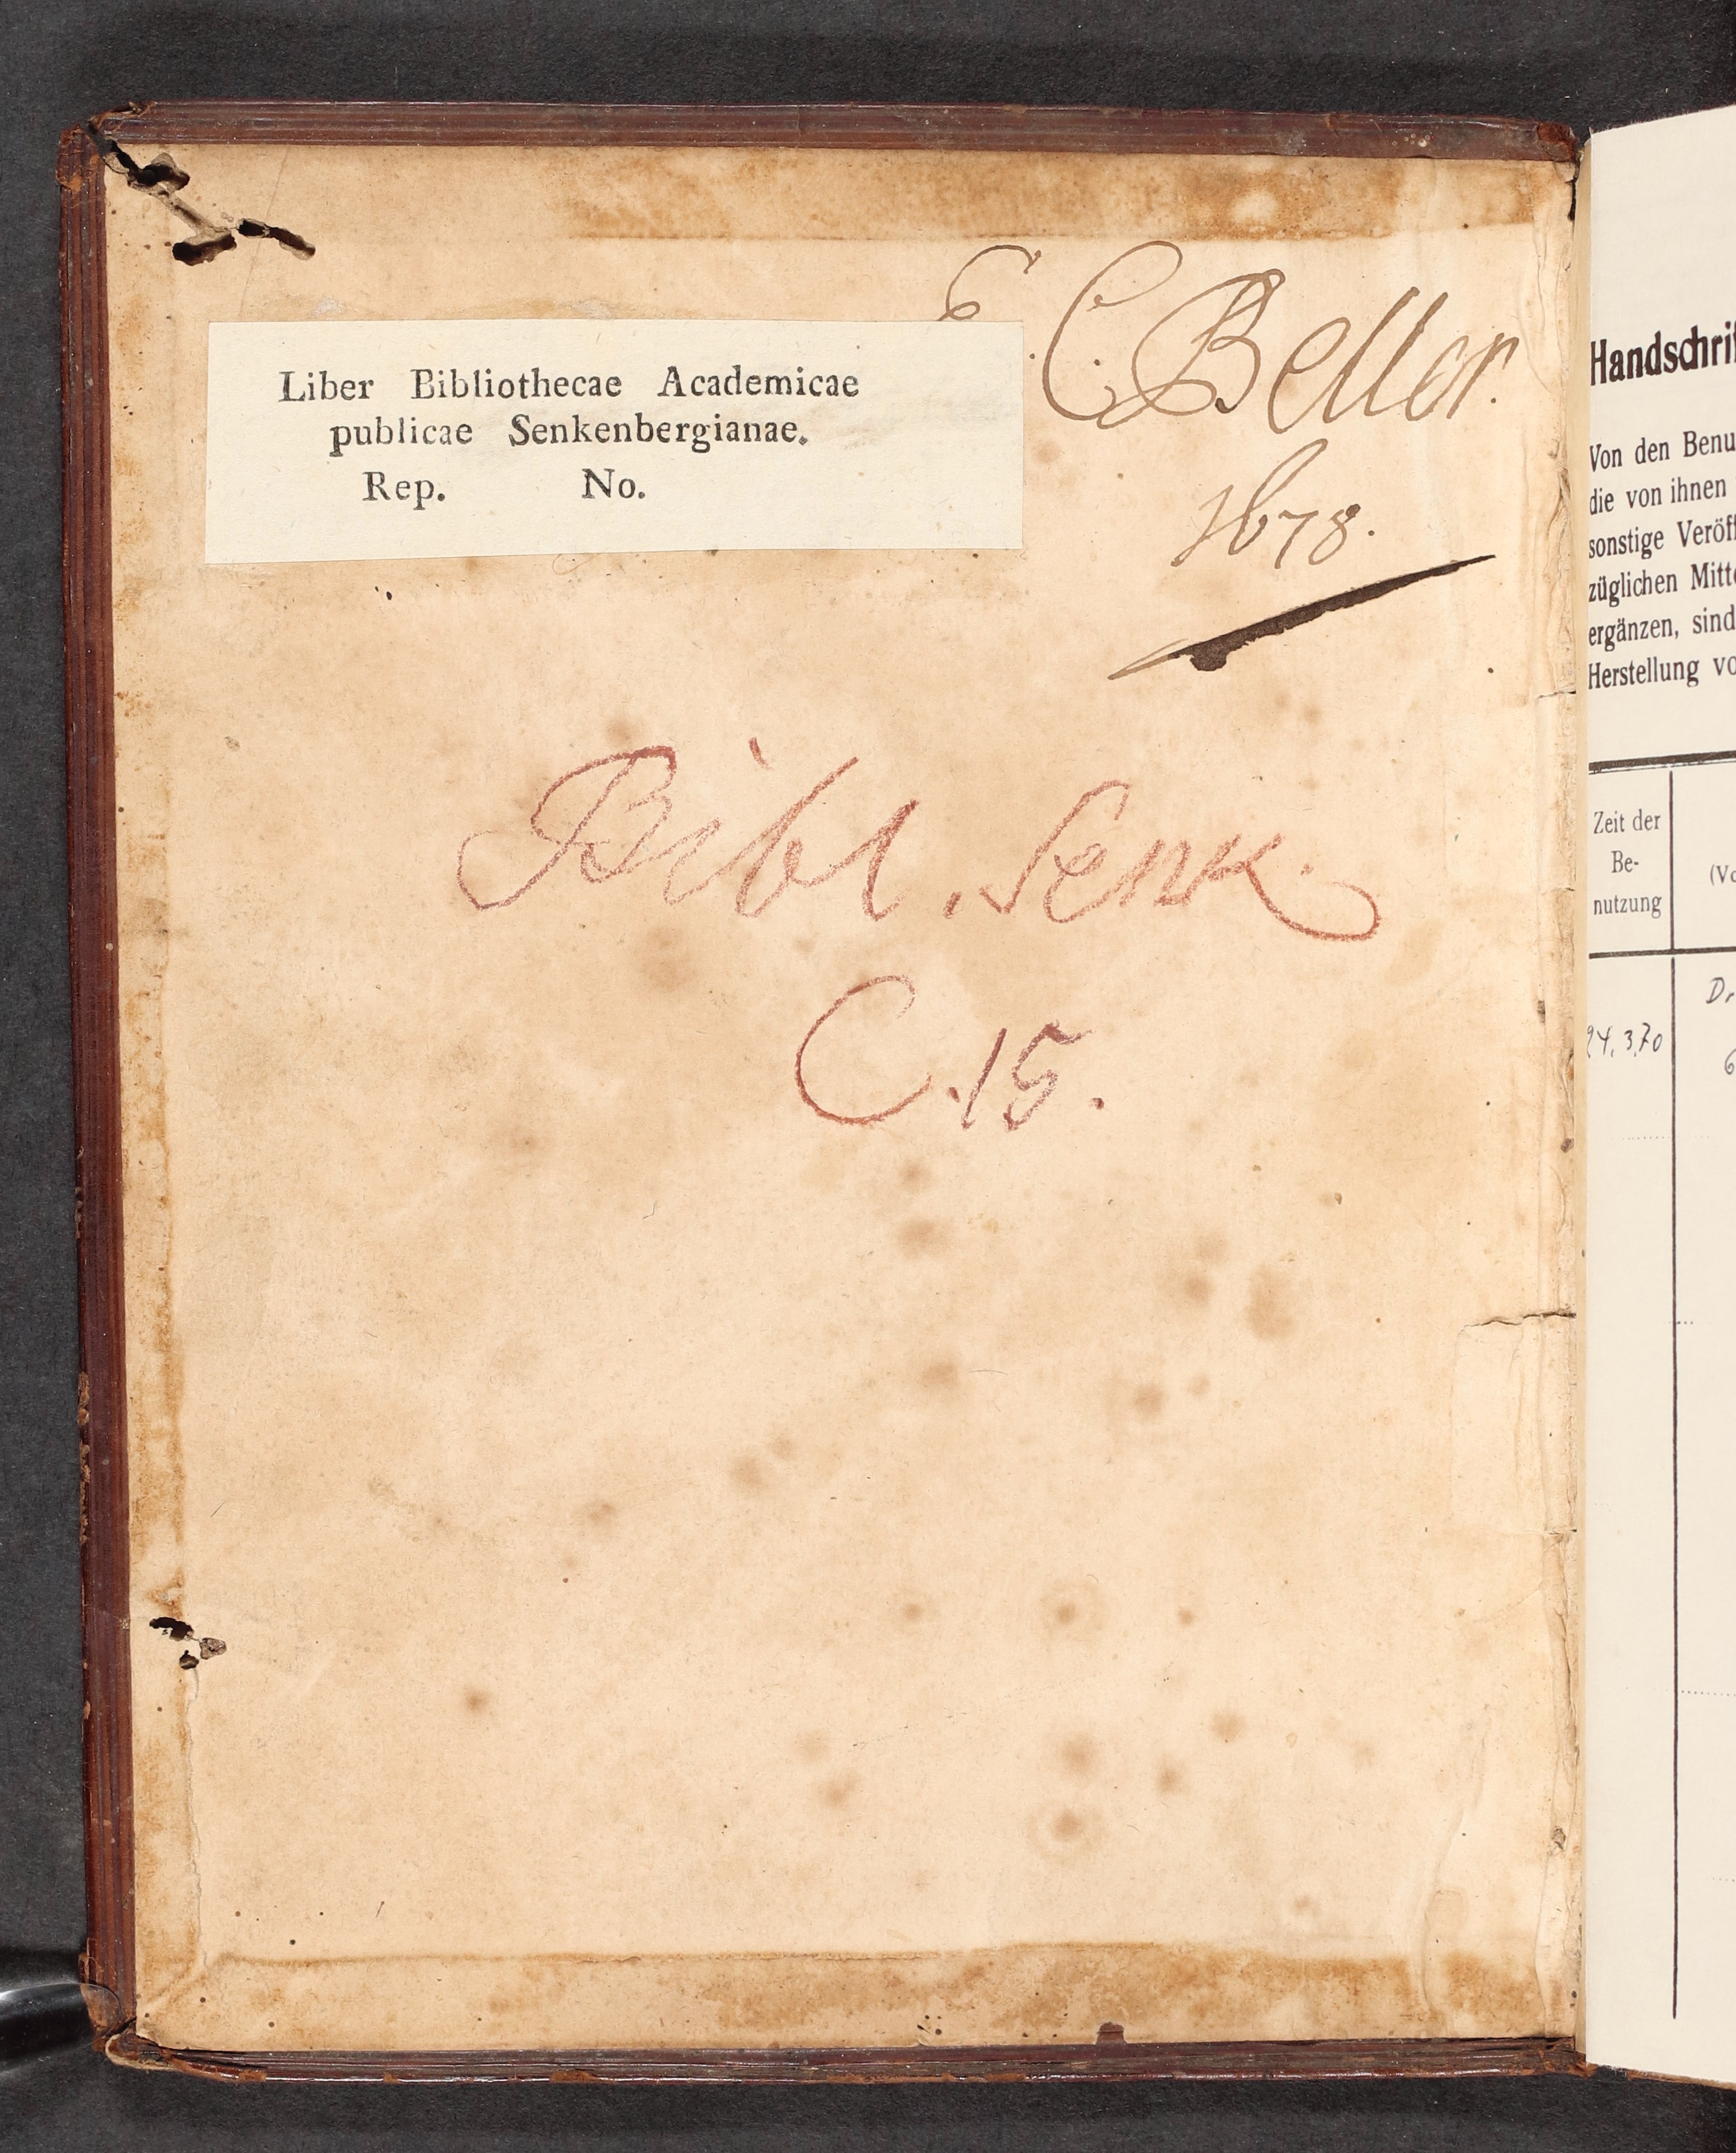 C. Beller.
1678.
Liber Bibliothecae Academicae
publicae Senkenbergianae.
Rep. No.
Bibl. Senk.
C. 15.
Von den Benu
die von ihnen
sonstige Veröff
züglichen Mitte
ergänzen, sind
Herstellung vo
Zeit der
Be-
nutzung
(Vo
24.3.70